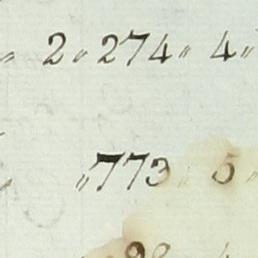 2 „ 274 „ 4 „
„ 773 „ 5 „